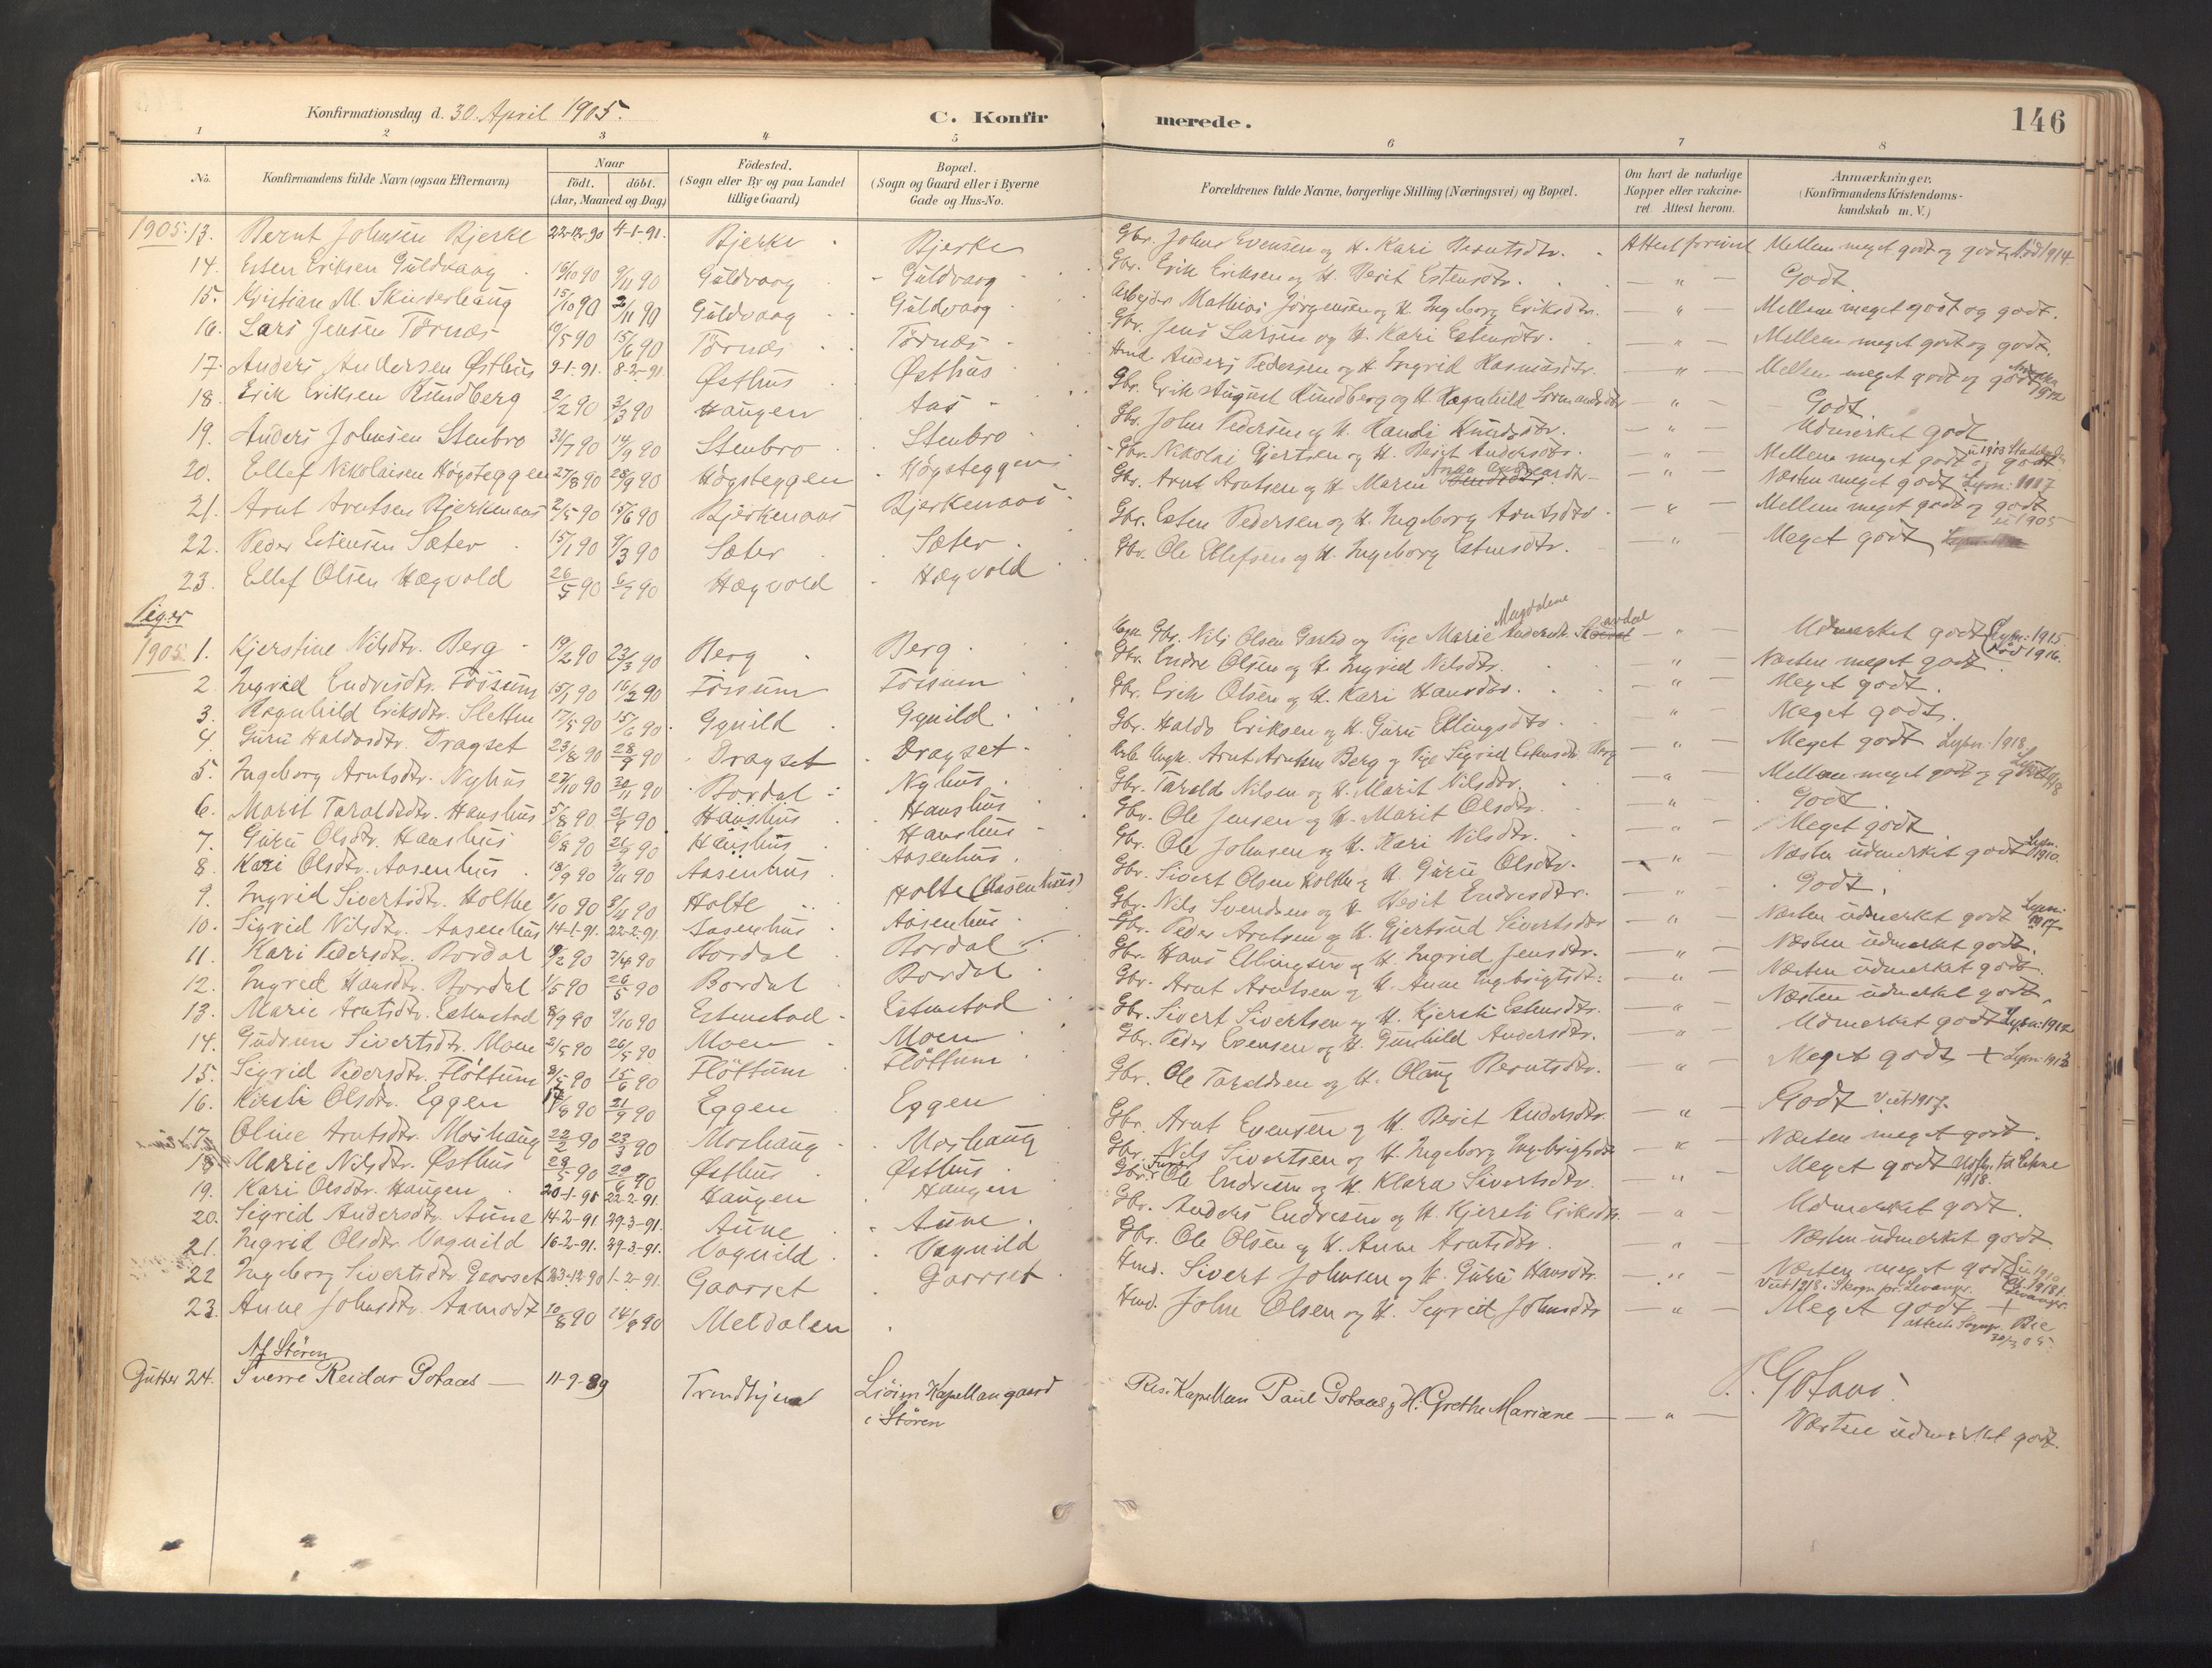 Konfirmationsdag d. 30. April 1905.
C. Konfirmerede.
146
1 2 3 4 5 6 7 8
No. Konfirmandens fulde Navn (ogsaa Efternavn) Naar født. døbt. (Aar, Maaned og Dag) Fødested. (Sogn eller By og paa Landet tillige Gaard) Bopæl. (Sogn og Gaard eller i Byerne Gade og Hus-No. Forældrenes fulde Navne, borgerlige Stilling (Næringsvei) og Bopæl. Om havt de naturlige Kopper eller vakcineret. Attest herom. Anmærkninger. (Konfirmandens Kristendomskundskab m. V.)
1905. 13. Bernt Johnsen Bjerke 22-12-90 4-1-91. Bjerke Bjerke Gbr. Johns Evensen og H. Kari Berntsdtr. Attest forevist Mellem meget godt og godt, død 1914.
14. Esten Eriksen Guldvaag 15/10 90 9/11 90 Guldvaag Guldvaag Gbr. Erik Eriksen og H. Berit Estensdtr. — " — Godt.
15. Kristian M. Skinderhaug 15/10 90 2/11 90 Guldvaag Guldvaag Arbejder Mathias Jørgensen og H. Ingeborg Eriksdtr. — " — Mellem meget godt og godt.
16. Lars Jensen Tørnæs 10/5 90 15/6 90 Tørnæs Tørnæs Gbr. Jens Larsen og H. Kari Estensdtr. — " — Mellem meget godt og godt.
17. Anders Andersen Østhus 9-1-91. 8-2-91. Østhus Østhus Hmd. Anders Pedersen og H. Ingrid Rasmusdtr. — " — Mellem meget godt og godt
18. Erik Eriksen Rundberg 2/2 90 3/3 90 Haugen Aas Gbr. Erik August Rundberg og H. Ragnhild — " — Godt.
19. Anders Johnsen Stenbro 31/7 90 14/9 90 Stenbro Stenbro Gbr. John Pedersen og H. Randi Knudsdtr. — " — Udmerket godt
20. Ellef Nikolaisen Høgsteggen 27/8 90 28/9 90 Høgsteggen Høgsteggen Gbr. Nikolai Gjertsen og H. Berit Andersdtr. — " — Mellem meget godt og godt
21. Arnt Arntsen Bjerkenaas 2/5 90 15/6 90 Bjerkenaas Bjerkenaas Gbr. Arnt Arntsen og H. Maren — " — Næsten meget godt Lysn: 1917
22. Peder Estensen Sæter 15/1 90 9/3 90 Sæter Sæter Gbr. Esten Pedersen og H. Ingeborg Arntsdtr. — " — Mellem meget godt og godt
23. Ellef Olsen Hægvold 26/5 90 6/7 90 Hægvold Hægvold Gbr. Ole Ellefsen og H. Ingeborg Estensdtr. — " — Meget godt
Piger
1905. 1. Kjerstine Nilsdtr. Berg 19/2 90 23/3 90 Berg Berg Gbr. Nils Olsen og Pige Marie Magdalene Andersdtr. — " — Udmerket godt (Lysn: 1915 død 1916.
2. Ingrid Endresdtr. Fossum 15/1 90 16/2 90 Fossum Fossum Gbr. Endre Olsen og H. Ingrid Nilsdtr. — " — Næsten meget godt
3. Ragnhild Eriksdtr. Sletten 17/5 90 15/6 90 Gynild Gynild Gbr. Erik Olsen og H. Kari Hansdtr. — " — Meget godt.
4. Guru Haldosdtr. Dragset 23/8 90 28/9 90 Dragset Dragset Gbr. Haldo Eriksen og H. Guru Ellingsdtr. " — Meget godt.
5. Ingeborg Arntsdtr. Nyhus 27/10 90 30/11 90 Bordal Nyhus Arb. Ungk. Arnt Arntsen Berg og Pige Sigrid Estensdtr. Berg — " — Meget godt Lysn: 1918
6. Marit Taraldsdtr. Hanshus 5/8 90 21/9 90 Hanshus Hanshus Gbr. Tarald Nilsen og H. Marit Nilsdtr. " — Mellem meget godt og godt
7. Guru Olsdtr. Hanshus 6/8 90 21/9 90 Hanshus Hanshus Gbr. Ole Jensen og H. Marit Olsdtr. — " — Godt.
8. Kari Olsdtr. Aasenhus 18/9 90 9/11 90 Aasenhus Aasenhus Gbr. Ole Johnsen og H. Kari Nilsdtr. " — Meget godt
9. Ingrid Sivertsdtr. Holthe 9/10 90 9/11 90 Holte Holte (Aasenhus) Gbr. Sivert Olsen Holthe og H. Guru Olsdtr. " — Næsten udmerket godt Lysn: 1910.
10. Sigrid Nilsdtr. Aasenhus 14-1-91. 22-2-91 Aasenhus Aasenhus Gbr. Nils Svendsen og H. Berit Endresdtr. — " — Godt.
11. Kari Pedersdtr. Bordal 19/2 90 7/4 90 Bordal Bordal Gbr. Peder Arntsen og H. Gjertrud Sivertsdtr — " — Næsten udmerket godt Lysn: 1917
12. Ingrid Hansdtr. Bordal 1/5 90 26/5 90 Bordal Bordal Gbr. Hans Ellingsen og H. Ingrid Jensdtr. — " — Næsten udmerket godt.
13. Marie Arntsdtr. Estenstad 8/9 90 9/10 90 Estenstad Estenstad Gbr. Arnt Arntsen og H. Anne Ingebrigtsdt: — " — Næsten udmerket godt.
14. Gudrun Sivertsdtr. Moen 2/5 90 26/5 90 Moen Moen Gbr. Sivert Sivertsen og H. Kjersti Estensdtr. — " — Næsten udmerket godt.
15. Sigrid Pedersdtr. Fløttum 8/5 90 15/6 90 Fløttum Fløttum Gbr. Peder Evensen og H. Gunhild Andersdtr. " — Udmerket godt Lysn: 1912
16. Kirsti Olsdtr. Eggen 14/8 90 21/9 90 Eggen Eggen Gbr. Ole Taraldsen og H. Olaug Berntsdtr. — " — Meget godt + Lysn: 1913
17. Oline Arntsdtr. Moshaug 22/2 90 23/3 90 Moshaug Moshaug Gbr. Arnt Evensen og H. Berit Andersdtr. — " — Godt Viet 1917.
18. Marie Nilsdtr. Østhus 28/5 90 29/6 90 Østhus Østhus Gbr. Nils Sivertsen og H. Ingeborg Ingebrigtsdtr — " — Næsten meget godt.
19. Kari Olsdtr. Haugen 20-1-91 22-2-91. Haugen Haugen Gbr. Ole Endresen og H. Klara Sivertsdtr. — " — Meget godt 1918.
20. Sigrid Andersdtr. Aune 14-2-91. 29-3-91. Aune Aune Gbr. Anders Endresen og H. Kjersti Eriksdtr. — " — Udmerket godt.
21. Ingrid Olsdtr. Vagnild 16-2-91. 29-3-91. Vagnild Vagnild Gbr. Ole Olsen og H. Anne Arntsdtr. " — Næsten udmerket godt.
22 Ingeborg Sivertsdtr. Gaarset 23-12-90 1-2-91. Gaarset Gaarset Hmd. Sivert Johnsen og H. Guru Hansdtr. — " — Næsten meget godt
23. Anne Johnsdtr. Aamodt 10/8 90 14/9 90 Meldalen Hmd. John Olsen og H. Sigrid Johnsdtr — " — Meget godt. +
Af Støren
Gutter 24. Sverre Reidar Gotaas — 11-9-89 Trondhjem Liøien Kapellangaard i Støren Res. Kapellan Paul Gotaas og H. Grethe Mariane — — " — P. Gotaas.
Næsten udmerket godt.